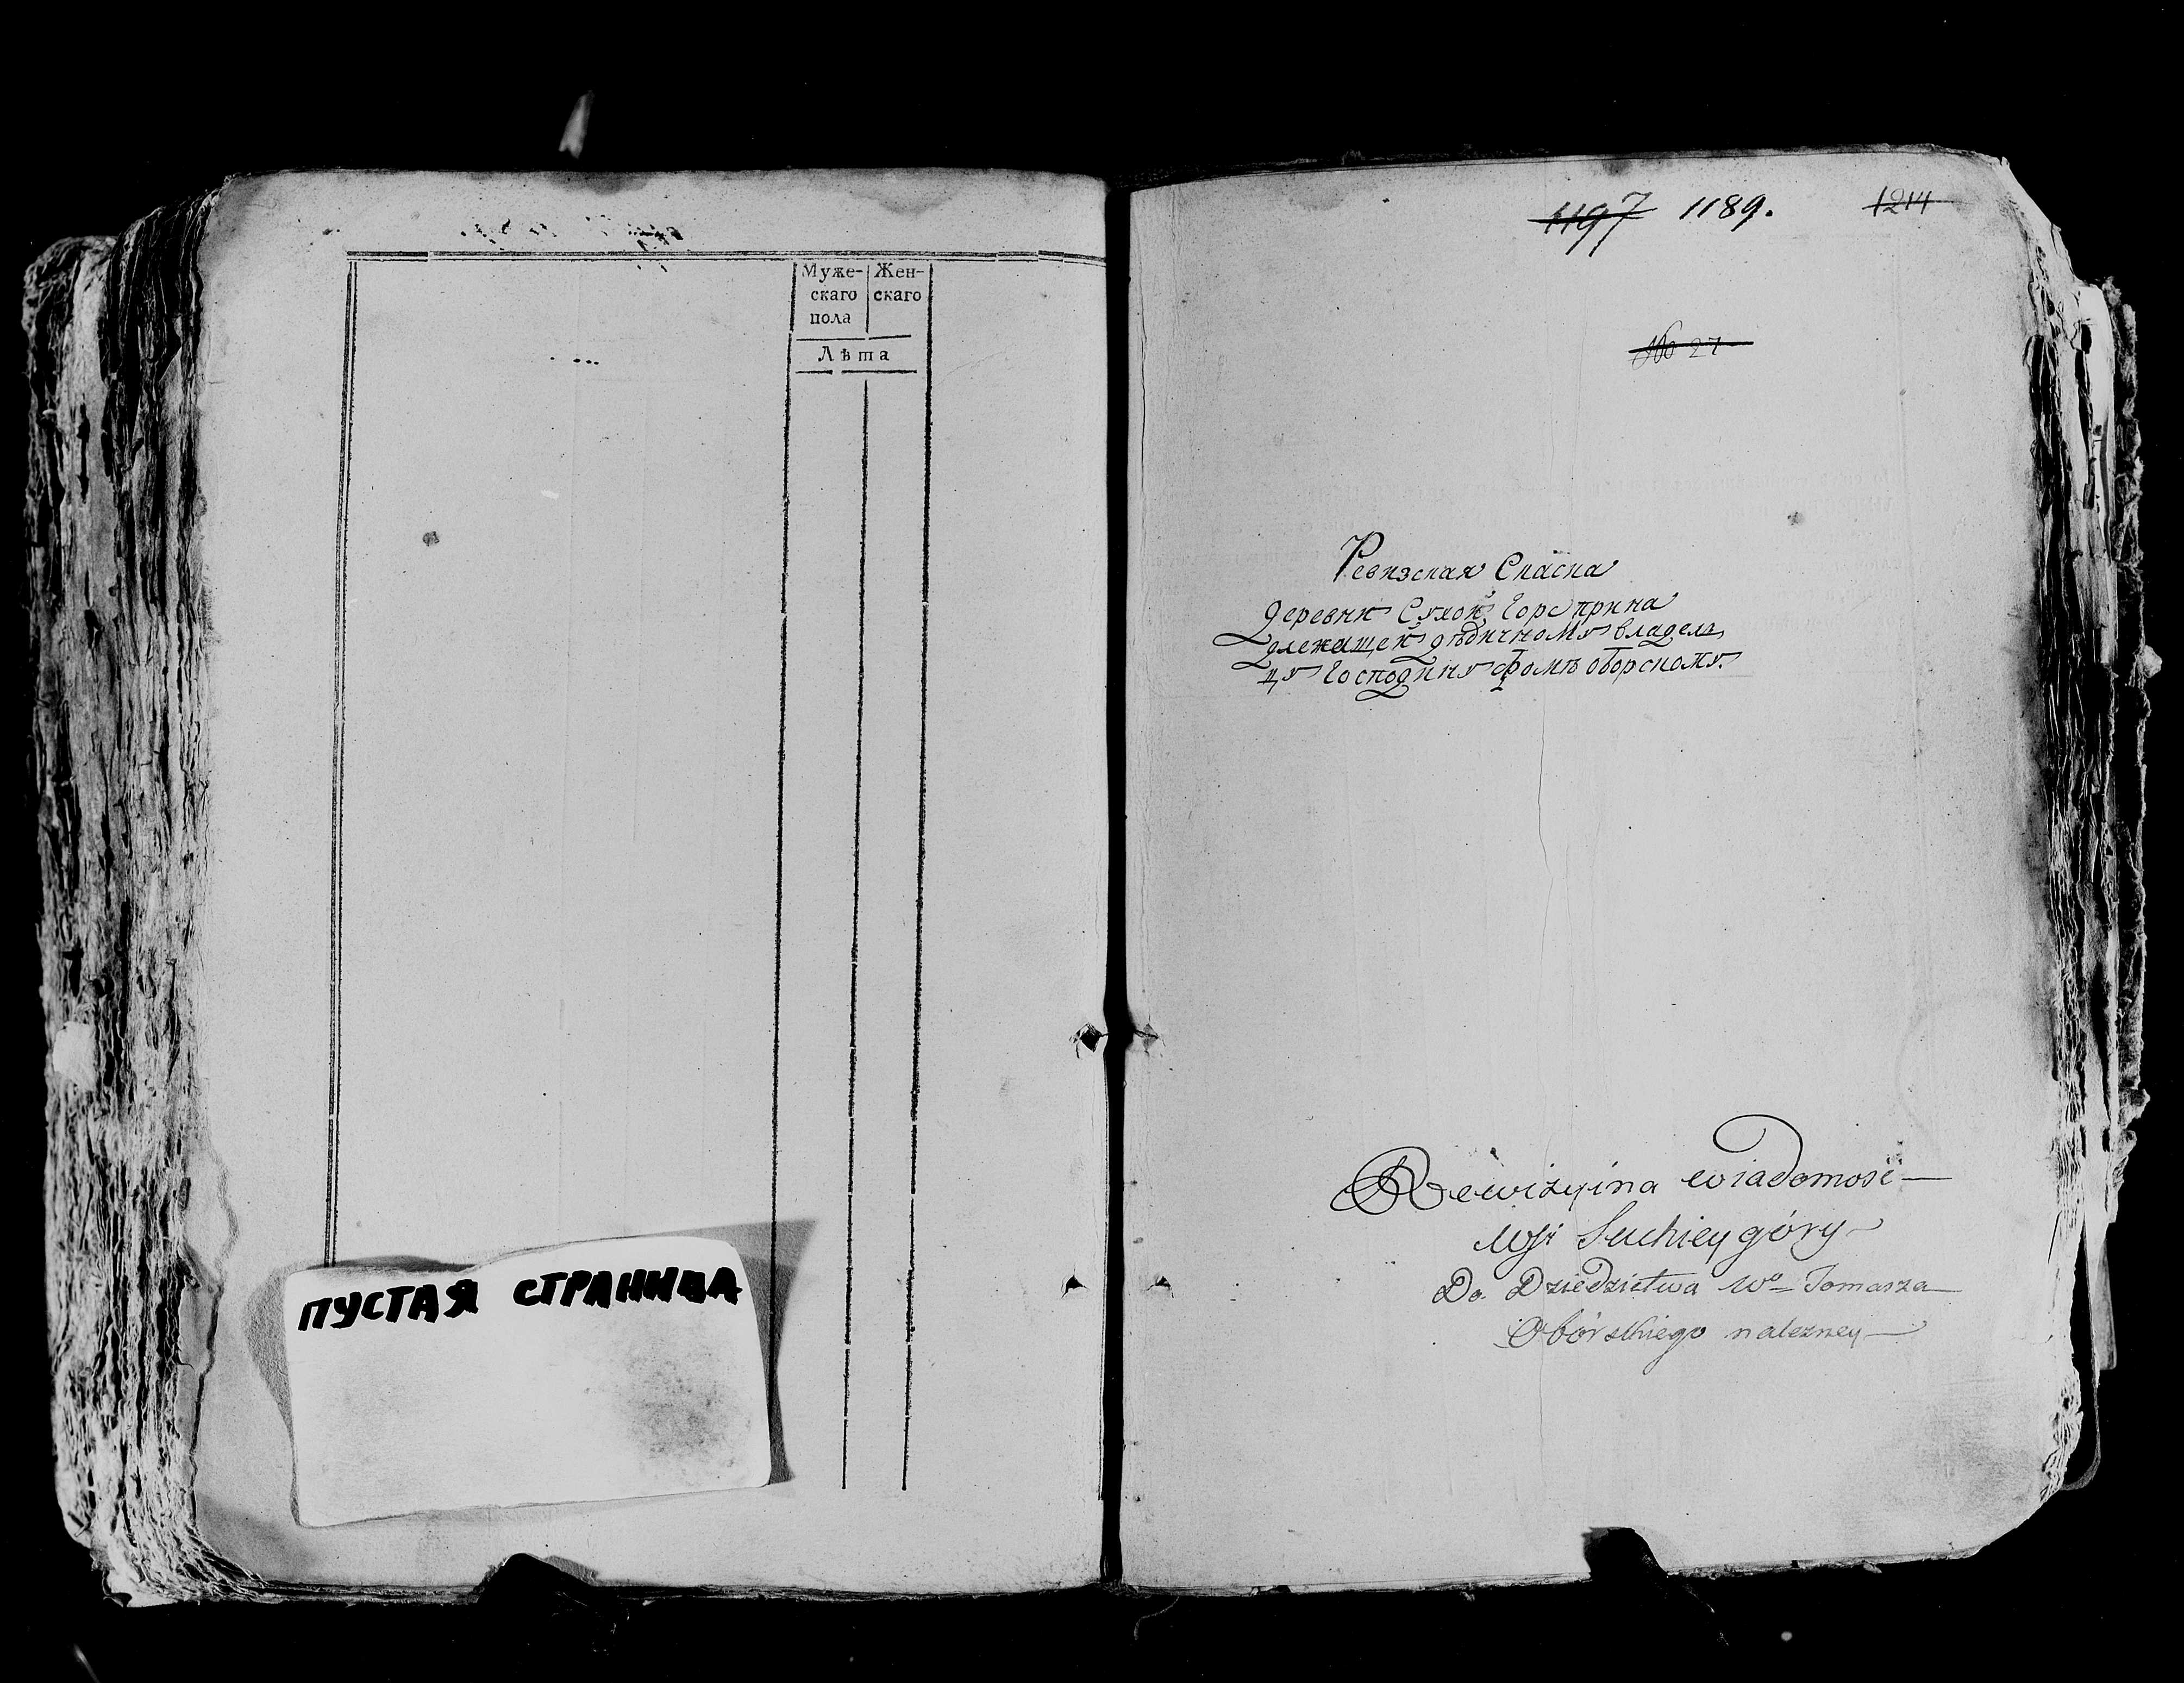 Муже- Жен-
скаго скаго
пола
Лѣта
ПУСТАЯ СТРАНИЦА
1197 1189. 1214
No 27
Ревизская Сказка
деревни Сухой Горы прина
длежащей дѣдичному владел
цу Господину Фомѣ оборскому.
Rewizyina wiadomość
Wsi Suchiey góry
Do Dziedzictwa Wo Tomasza
Obórskiego nalezney